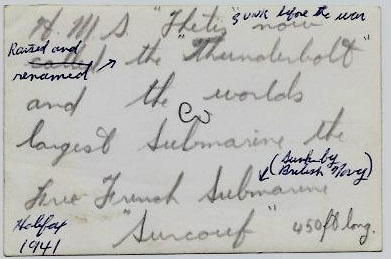 H.M.S. "Thetis" now
sunk before the war
Raised and
renamed
called the "Thunderbolt"
and the worlds
largest Submarine the
(Sunk by
British Navy)
Free French Submarine
"Surcouf" 450 ft long.
Halifax
1941